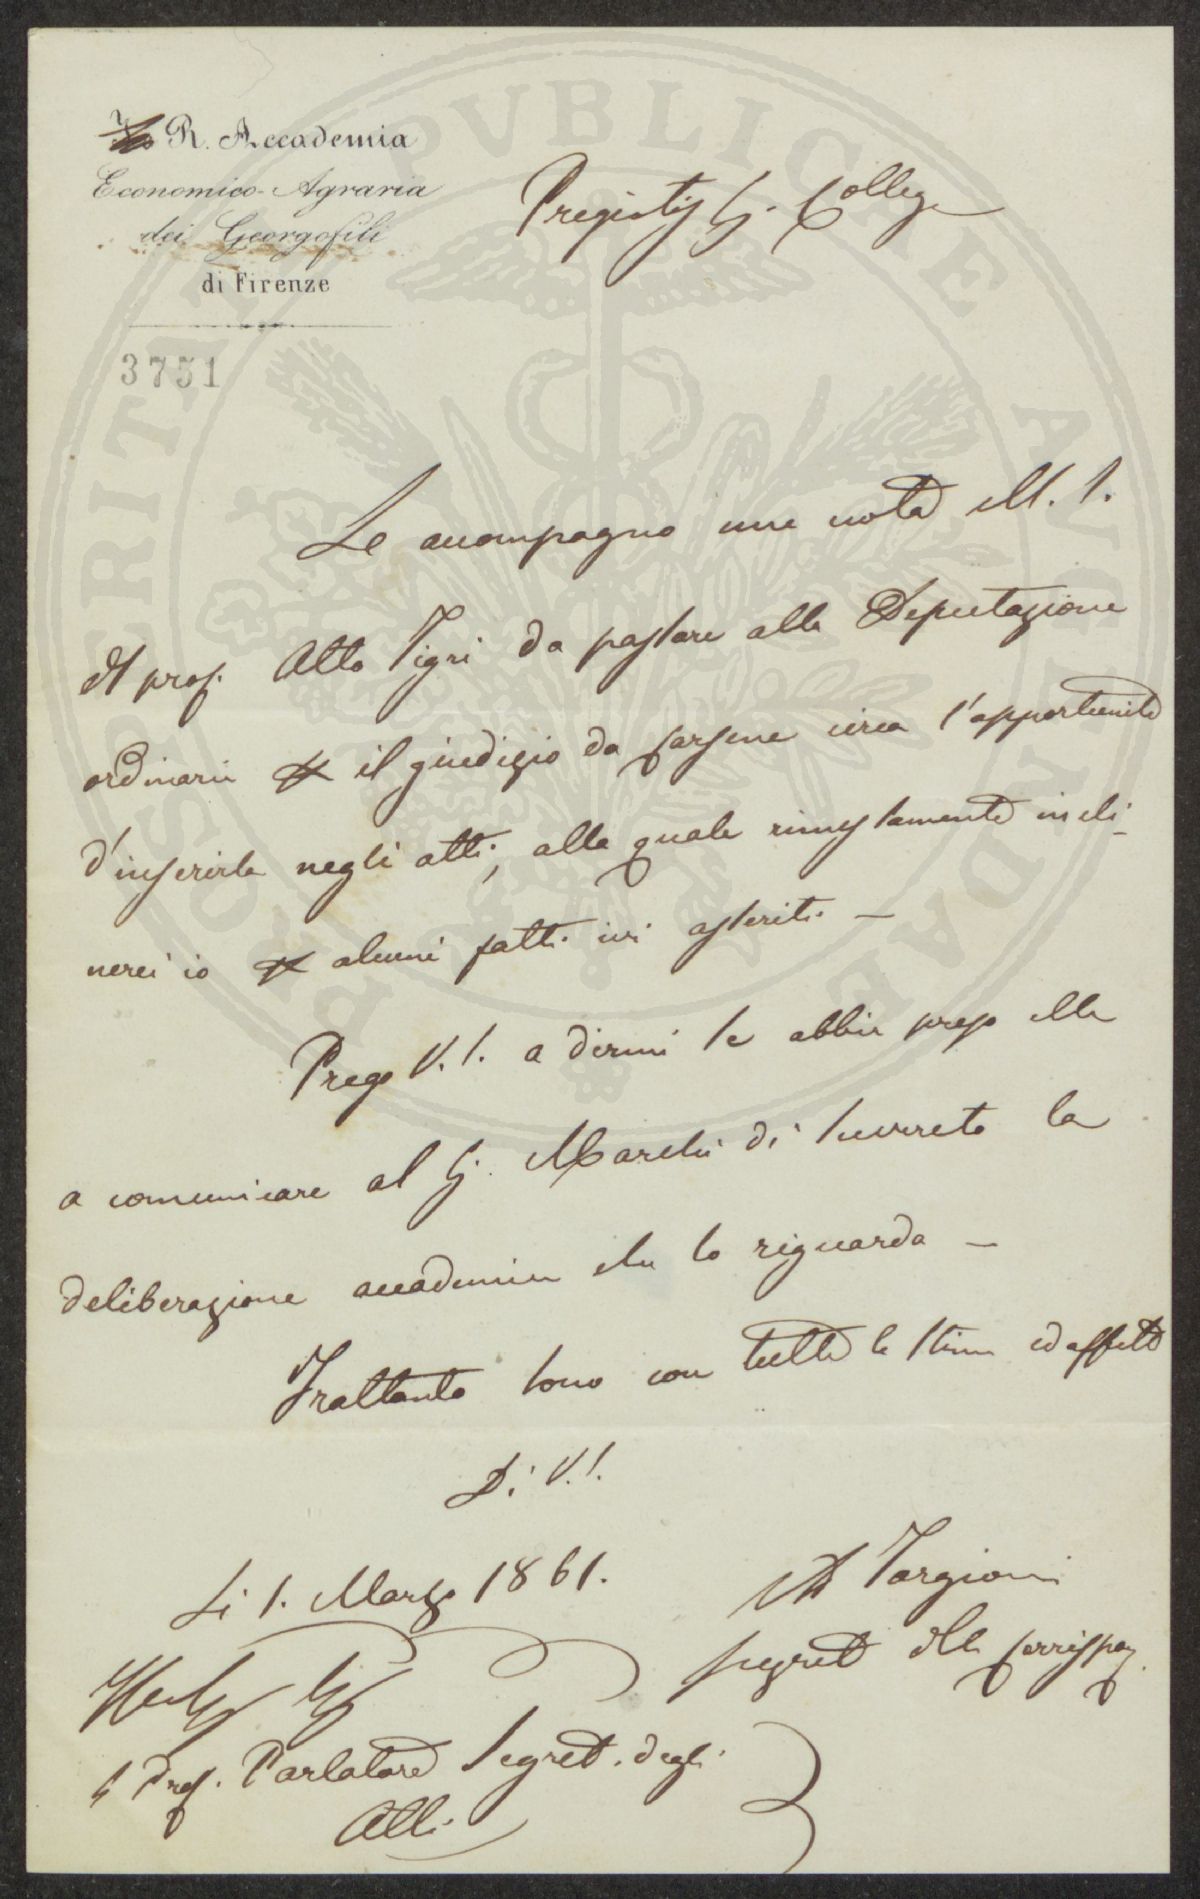 R. Accademia
Economico-Agraria
dei Georgofili
di Firenze
3751
PROSPERITATI PVBLICAE AVGENDAE
Collega
Le accompagno una nota M. S.
prof. Atto Tigri da passare alla Deputazione
ordinaria il giudizio da farsene circa l'opportunità
d'inserirla negli atti, alla quale incli-
nerei io alcuni fatti ivi asseriti. —
Prego V. S. a dirmi se abbia preso ella
a comunicare al Sig. Marchi di Suvereto la
deliberazione accademica che lo riguarda —
Frattanto sono con tutta la stima ed affetto
Di V. S.
Li 1. Marzo 1861.
Targioni
Segret. della Corrispoz.
Sig.
Prof. Parlatore Segret. degli
Atti